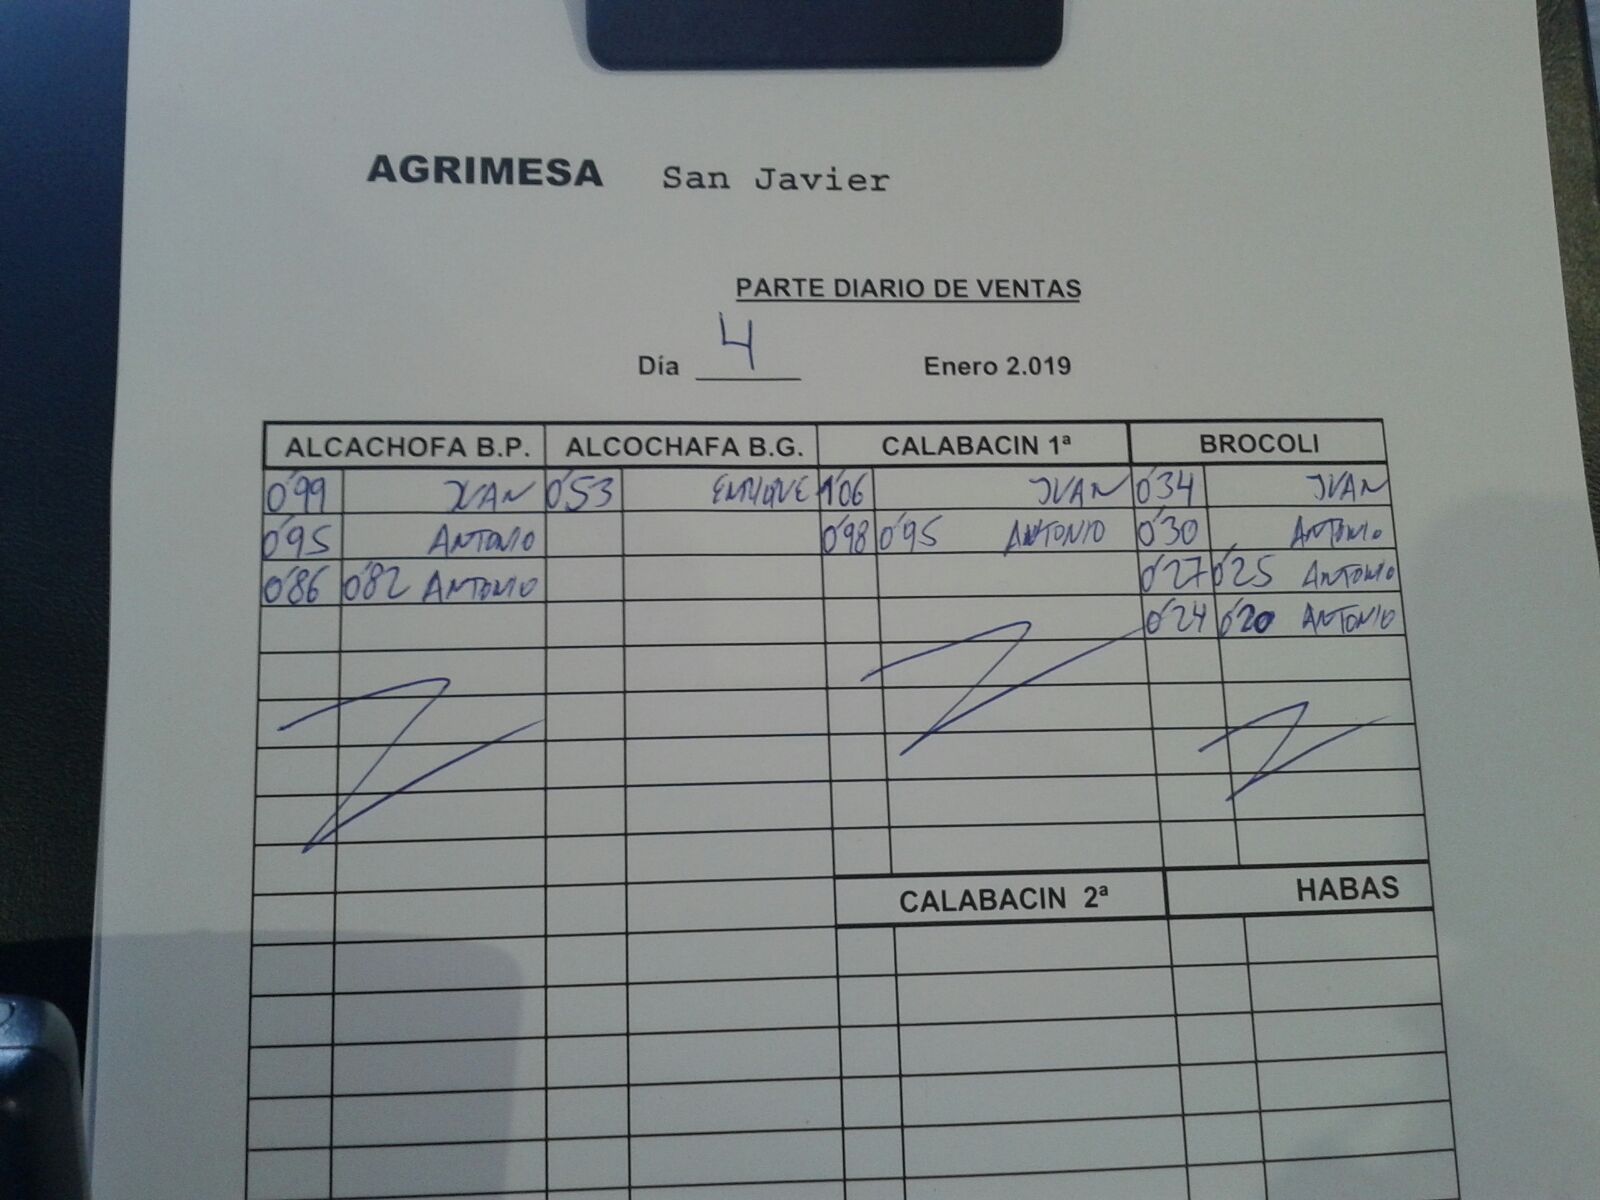 AGRIMESA San Javier
PARTE DIARIO DE VENTAS
Día 4 Enero 2.019
ALCACHOFA B.P. ALCOCHAFA B.G. CALABACIN 1ª BROCOLI
0'99 JUAN 0'53 ENRIQUE 1'06 JUAN 0'34 JUAN
0'95 ANTONIO 0'98 0'95 ANTONIO 0'30 ANTONIO
0'86 0'82 ANTONIO 0'27 0'25 ANTONIO
0'24 0'20 ANTONIO
CALABACIN 2ª HABAS